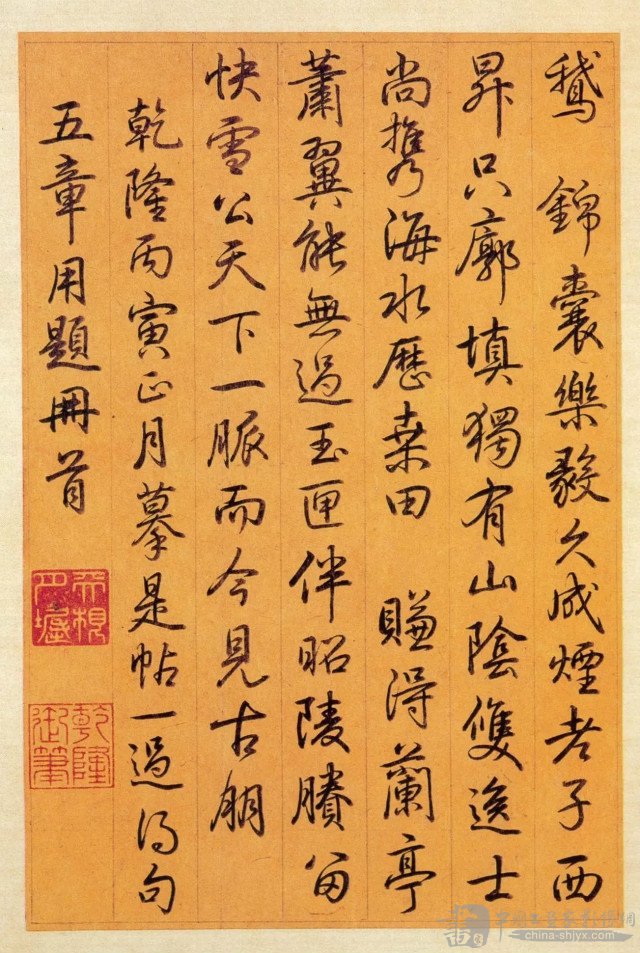 鵝 錦囊樂毅久成煙老子西
昇只廓填獨有山陰雙逸士
尚携海水歷桑田 賺得蘭亭
蕭翼能無過玉匣伴昭陵賸留
快雪公天下一脈而今見古朋
乾隆丙寅正月摹是帖一過得句
五章用題冊首
乾隆御筆
china-shjyx.com